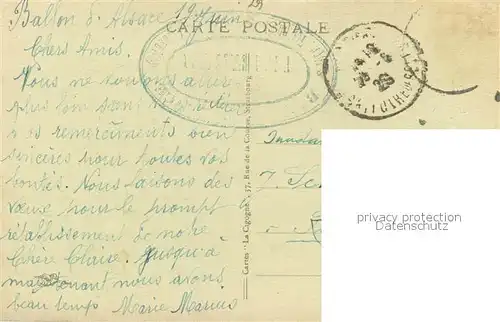 Ballon d'Alsace 19 Juin
CARTE POSTALE
Chers Amis.
Nous ne voulons aller
plus loin sans vous redire
nos remerciements bien
sincères pour toutes vos
bontés. Nous faisons des
vœux pour le prompt
rétablissement de notre
Chère Claire. Jusqu'à
maintenant nous avons
beau temps Marie Marius
Cartes "La Cigogne", 37, Rue de la Course, Strasbourg
privacy protection
Datenschutz